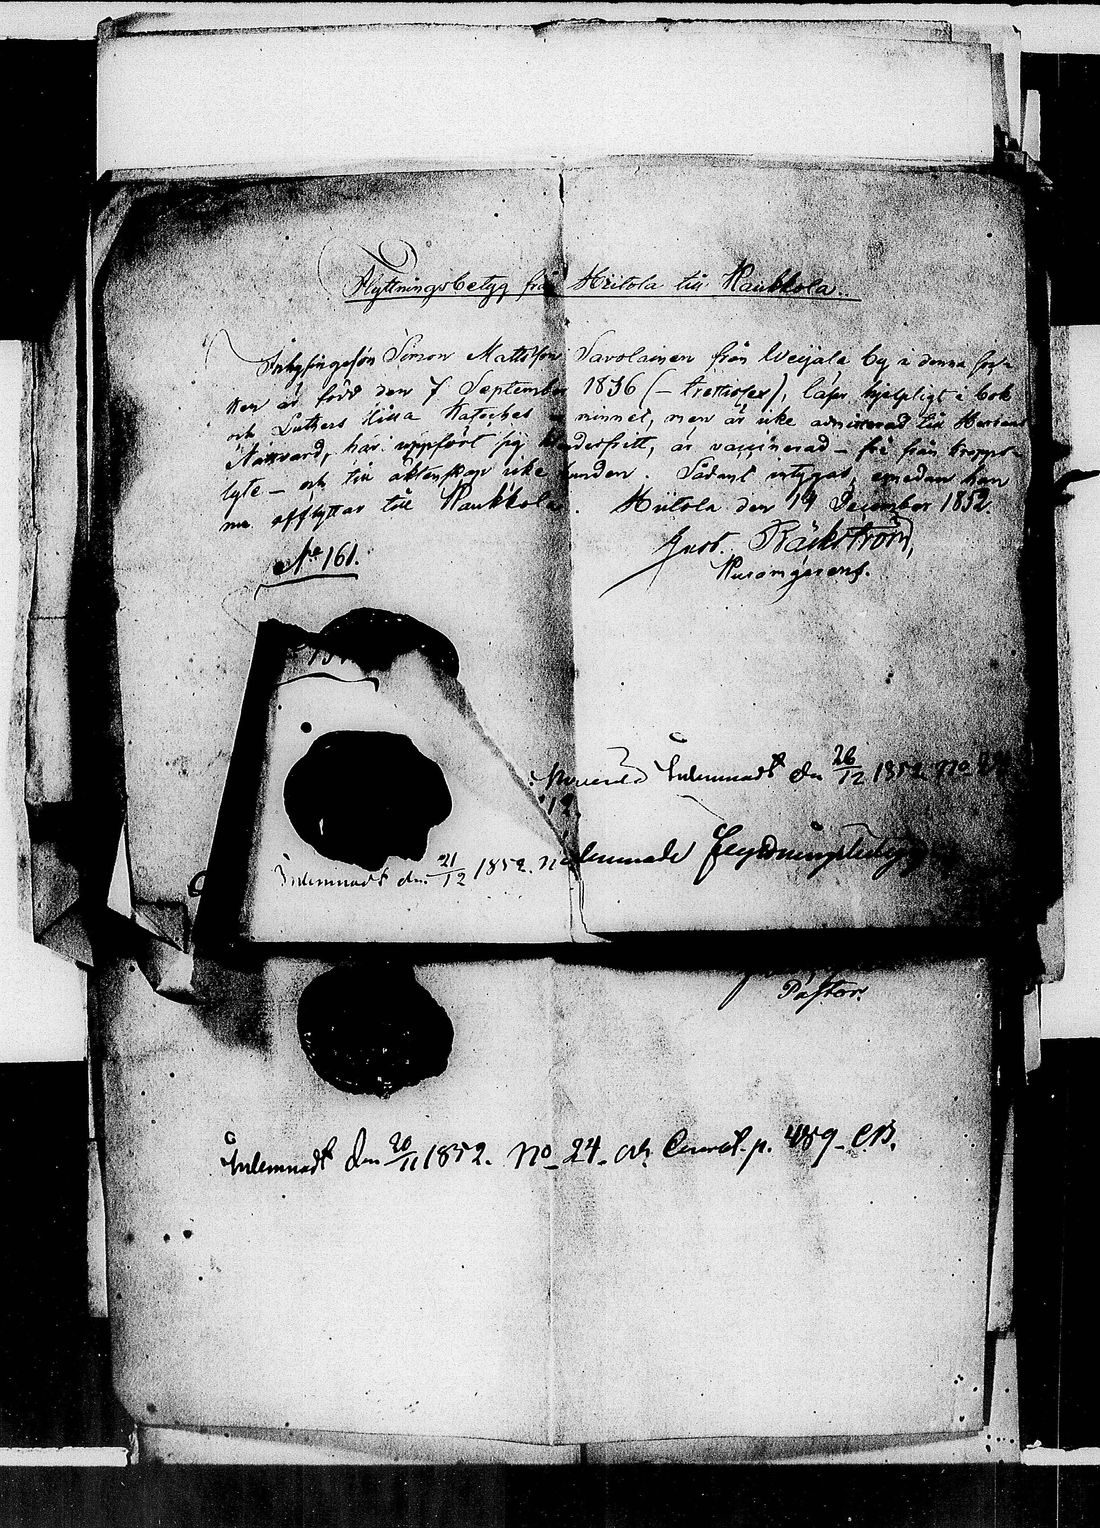 Flyttningsbetyg från Hiitola till Kaukkola.
Inhysingeson Simon Mattsson Savolainen från Weijala by i denna för-
är född den 7 September 1836 (— trettiosex), läser hjelpligt i bok
och Luthers lilla Kateches minnet, men är icke admitterad till Herrans
Nattvard, har uppfört sig klanderfritt, är vaccinerad — fri från kropps-
lyte — och till äktenskap icke bunden. Sådant intygas, emedan han
nu afflyttar till Kaukkola. Hiitola den 14 December 1852.
Gust. Bäckström,
No 161.
Inlemnadt den 26/12 1852 No
Inlemnadt den 21/12 1852. No
lemnade flyttningsbetyg
Pastor.
Inlemnadt den 20/11 1852. No 24. och p. 489. CB.